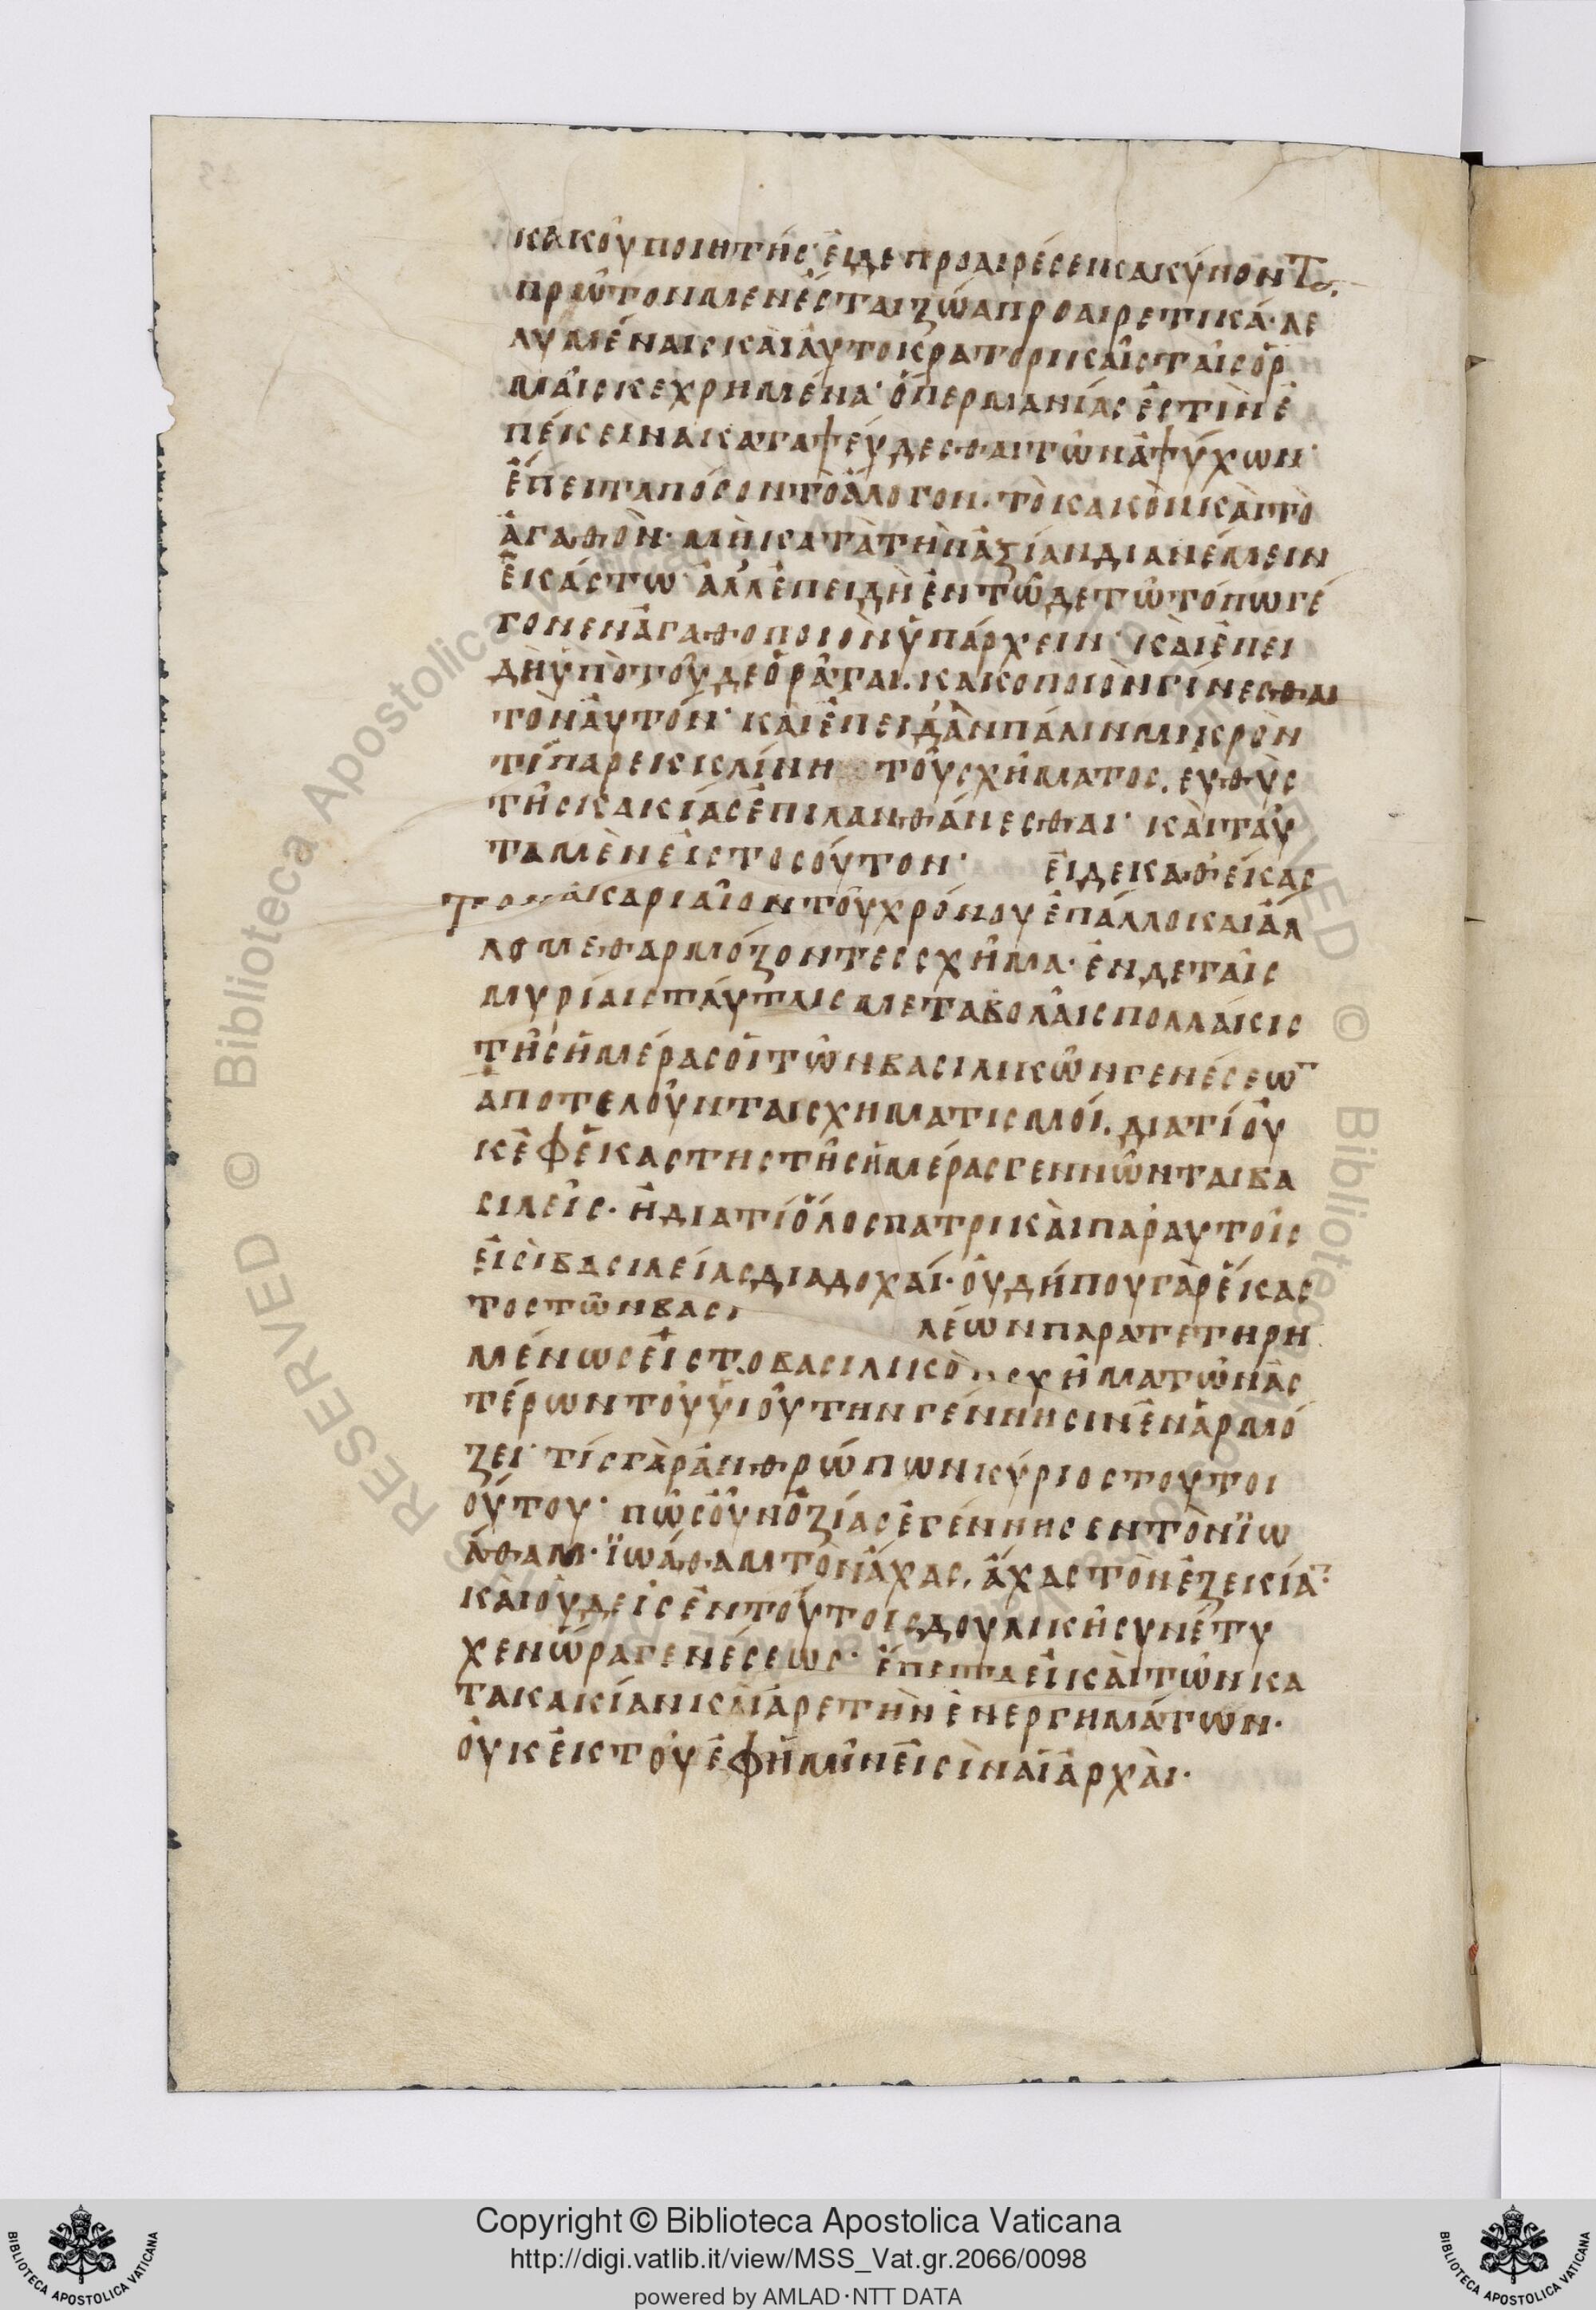 κακοῦ ποιητής· εἰ δὲ προαιρέσει κακύνονται
πρῶτον μὲν ἔσται ζῶα προαιρετικά· λε
λυμέναις καὶ αὐτοκρατορικαῖς ταῖς ὁρ
μαῖς κεχρημένα· ὅπερ μανίας ἐστὶν ἐ
πέκεινα καταψεύδεσθαι τῶν ἀψύχων·
ἔπειτα πόσον τὸ ἄλογον· τὸ κακὸν καὶ τὸ
ἀγαθὸν· μὴ κατὰ τὴν ἀξίαν διανέμειν
ἑκάστω· ἀλλ' ἐπειδὴ ἐν τῶδε τῶ τόπω γέ
γονεν ἀγαθοποιὸν ὑπάρχειν· καὶ ἐπει
δὴ ὑπὸ τοῦδε ὁρᾶται. κακοποιὸν γίνεσθαι
τὸν αὐτόν· καὶ ἐπειδὰν πάλιν μικρὸν
τί παρεκκλίνη τοῦ σχήματος. ευθὺς
τῆς κακίας ἐπιλανθάνεσθαι· καὶ ταῦ
τα μὲν εἰς τοσοῦτον· εἰ δὲ καθ' ἕκασ
τον ἀκαριαῖον τοῦ χρόνου ἐπ' ἄλλο καὶ ἄλ
λο μεθαρμόζοντες σχῆμα· ἐν δὲ ταῖς
μυρίαις ταύταις μεταβολαῖς πολλάκις
τῆς ἡμέρας οἱ τῶν βασιλικῶν γενέσεων
ἀποτελοῦνται σχηματισμοί. διατί οὐ
κ ἐφ' ἑκάστης τῆς ἡμέρας γεννῶνται βα
σιλεῖς· ἢ διατί ὅλος πατρικαὶ παρ' αυτοῖς
εἰσὶ βασιλείας διαδοχαί· οὐ δήπου γὰρ ἕκασ
τος τῶν βασιλέων παρατετηρη
μένως εἰς το βασιλικὸν σχῆμα τῶν ἀσ
τέρων τοῦ υἱοῦ την γέννησιν ἐναρμό
ζει· τίς γὰρ ἀνθρώπων κύριος τουτοι
οὕτου· πῶς οὖν ὀζίας ἐγέννησεν τὸν ϊω
άθαμ· ϊωάθαμ τὸν ἄχας. ἄχας τὸν ἐζεκίαν·
καὶ οὐδεὶς ἐν τούτοις δουλικῆς υνέτυ
χεν ὥρα γενέσεως· ἔπειτα εἰ καὶ τῶν κα
τα κακίαν καὶ ἀρετὴν ἐνεργημάτων·
οὐκ ἐκ τοῦ ἐφ' ἡμῖν εἰσὶν αἱ ἀρχαὶ·
Copyright © Biblioteca Apostolica Vaticana
http://digi.vatlib.it/view/MSS_Vat.gr.2066/0098
powered by AMLAD·NTT DATA
BIBLIOTECA APOSTOLICA VATICANA
BIBLIOTECA APOSTOLICA VATICANA